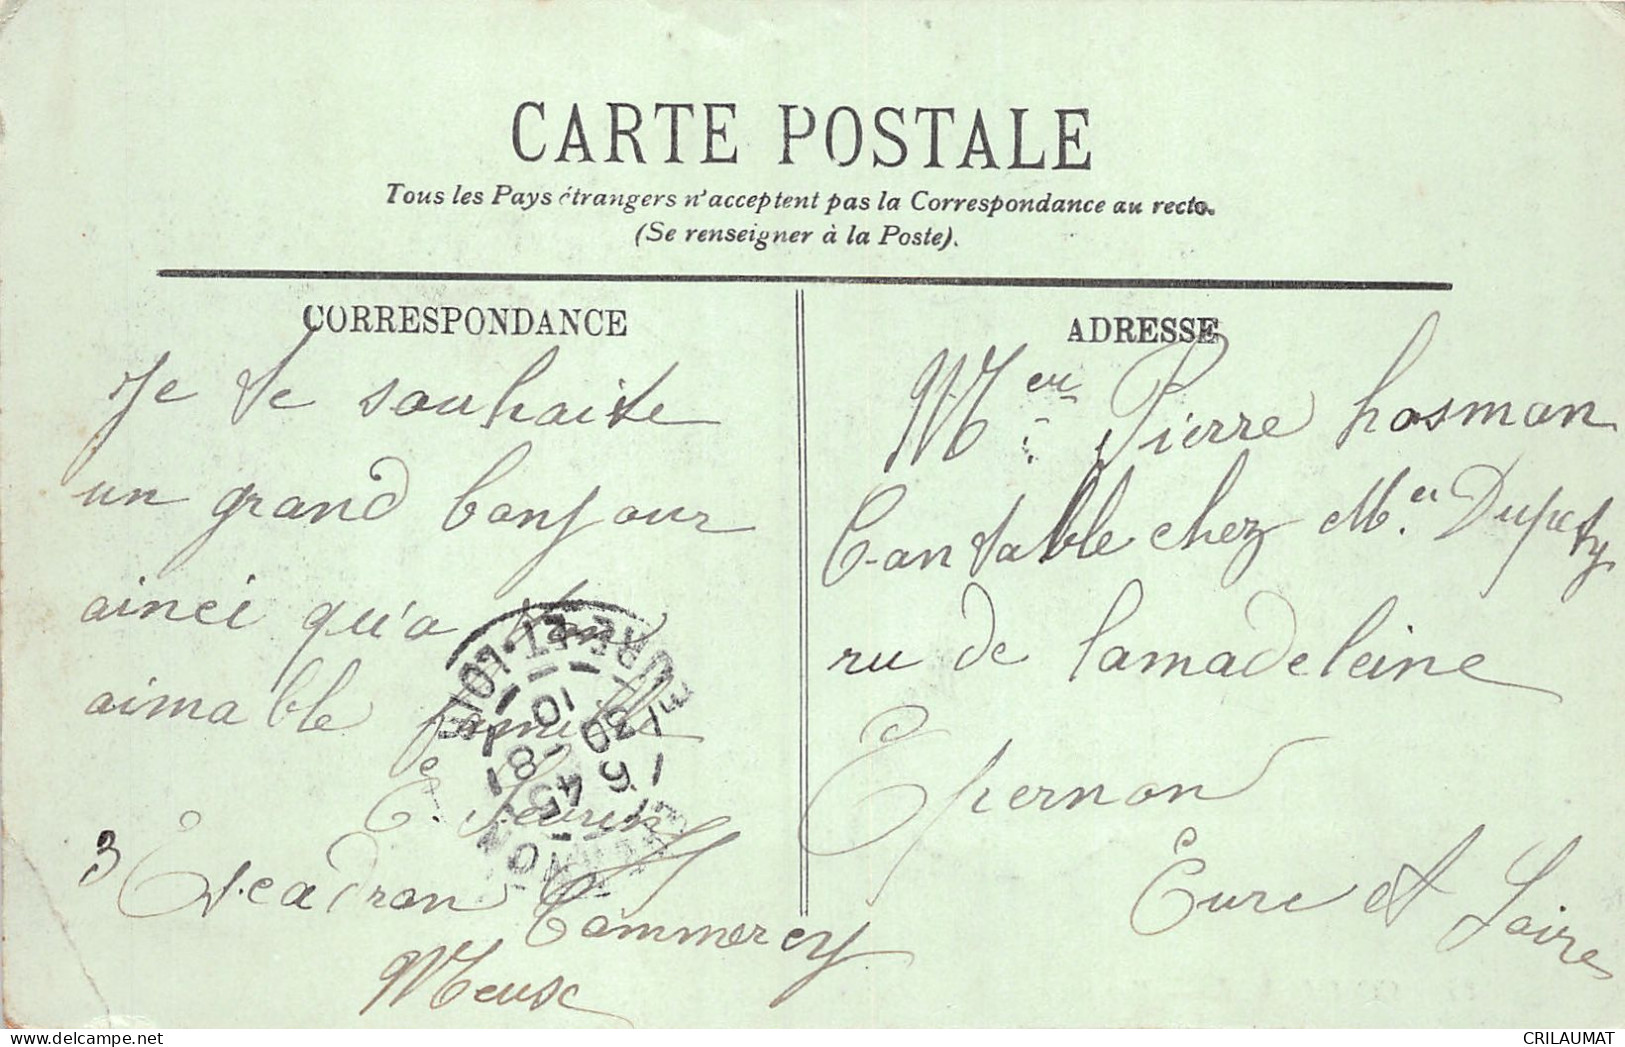 CARTE POSTALE
Tous les Pays étrangers n'acceptent pas la Correspondance au recto.
(Se renseigner à la Poste).
CORRESPONDANCE
Je te souhaite
un grand bonjour
ainci qu'a ton
aimable famille
E.
3 Escadron Commercy
Meuse
ADRESSE
Meur Pierre hosman
Contable chez Mer Dupety
ru de lamadeleine
Epernon
Eure et Loire
EURE-ET-LOIR
10 30
8 5 45
CRILAUMAT